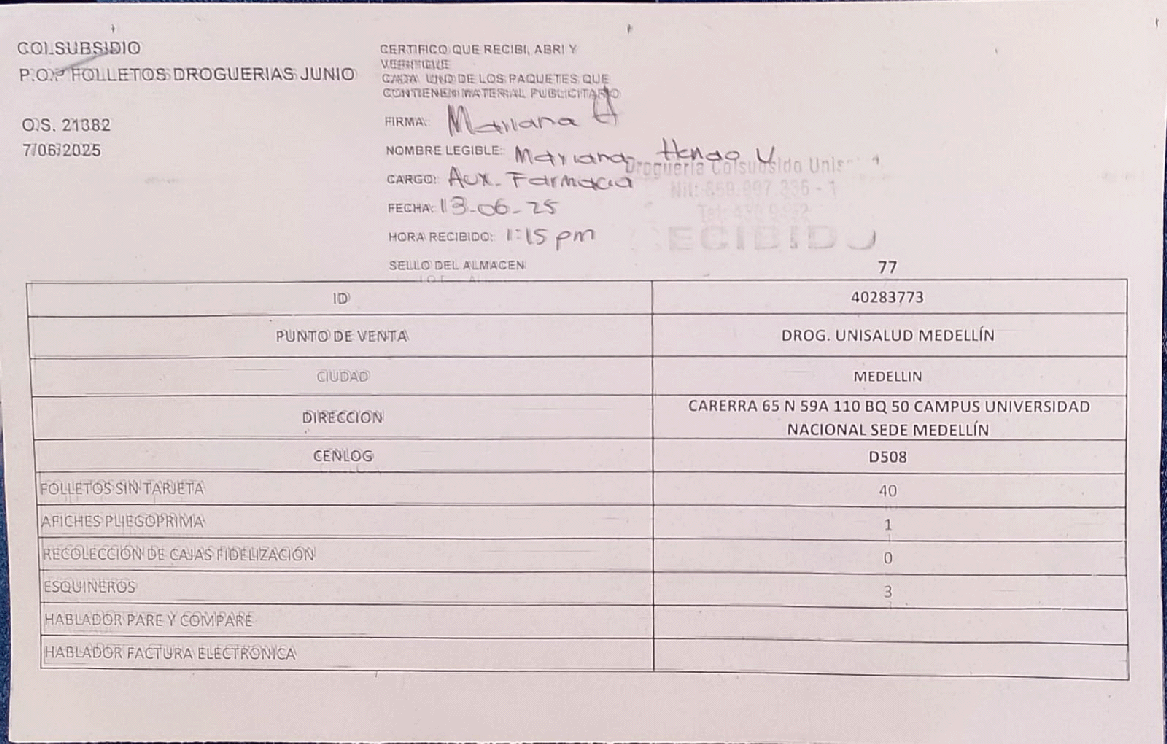 COLSUBSIDIO
P.O.P FOLLETOS DROGUERIAS JUNIO
O.S. 21382
7/06/2025
CERTIFICO QUE RECIBI, ABRI Y
VERIFIQUE
CADA UNO DE LOS PAQUETES QUE
CONTIENEN MATERIAL PUBLICITARIO
FIRMA: Mariana H
NOMBRE LEGIBLE: Mariana Henao V
CARGO: Aux. Farmacia
FECHA: 13-06-25
HORA RECIBIDO: 1:15 pm
SELLO DEL ALMACEN
Droguería Colsubsidio
RECIBIDO
77
ID 40283773
PUNTO DE VENTA DROG. UNISALUD MEDELLÍN
CIUDAD MEDELLIN
DIRECCION CARERRA 65 N 59A 110 BQ 50 CAMPUS UNIVERSIDAD
NACIONAL SEDE MEDELLÍN
CENLOG D508
FOLLETOS SIN TARJETA 40
AFICHES PLIEGOPRIMA 1
RECOLECCIÓN DE CAJAS FIDELIZACIÓN 0
ESQUINEROS 3
HABLADOR PARE Y COMPARE
HABLADOR FACTURA ELECTRONICA